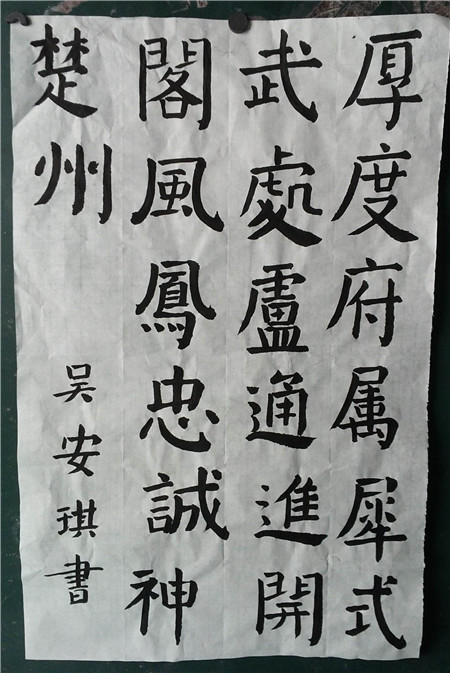 厚度府属犀式
武處盧通進開
閣風鳳忠誠神
楚州
吴安琪書